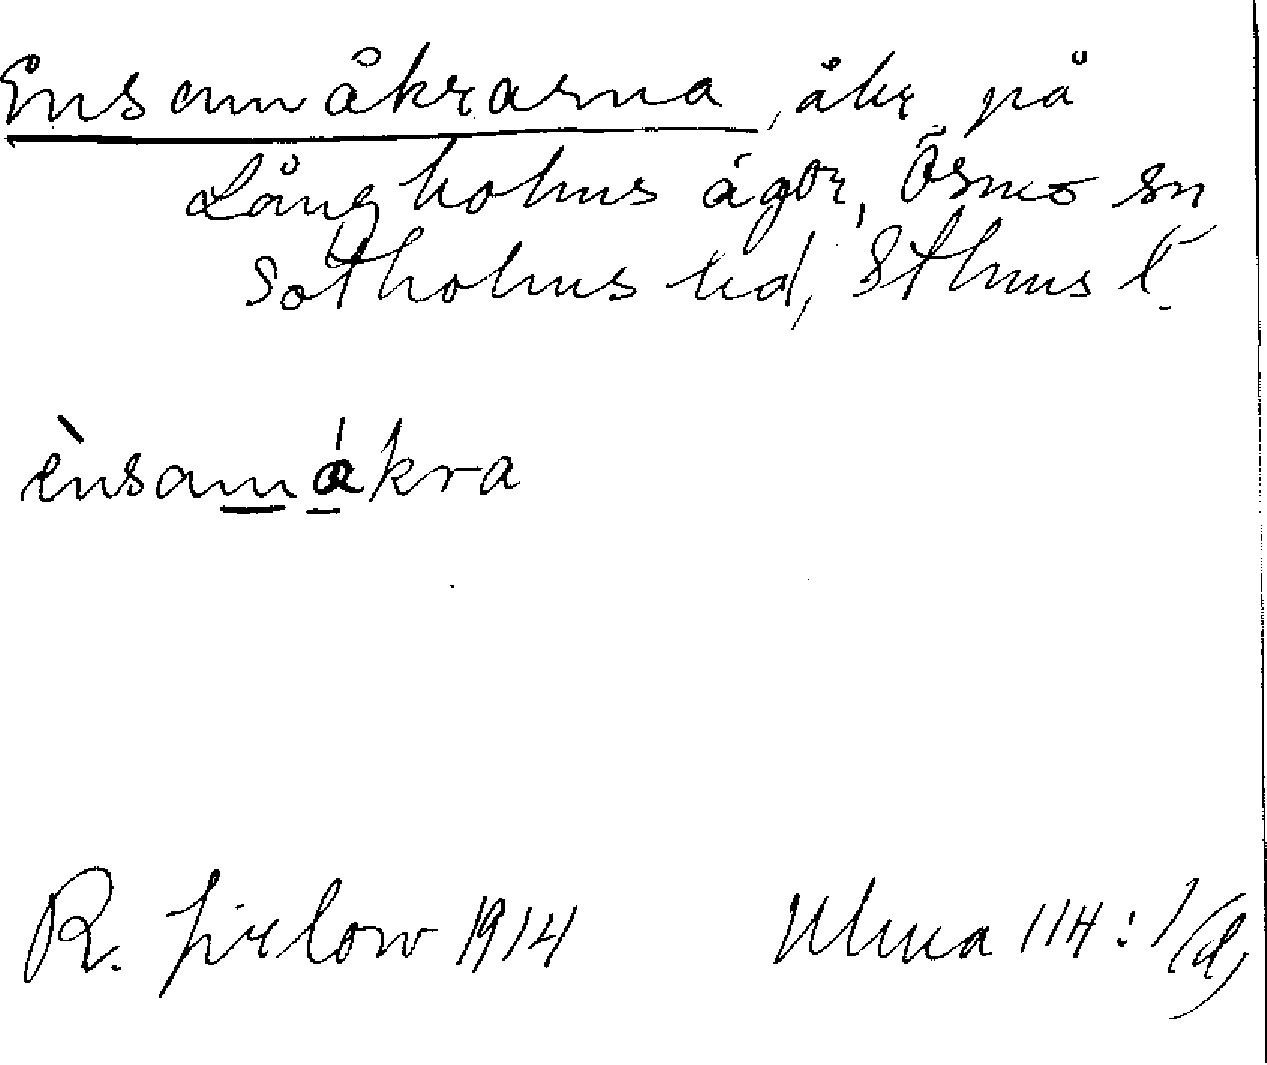 Ensamåkrarna, åkr på
Långholms ägor, Ösmo sn
Sotholms hd, Sthms l.
ènsamåkra
R. 1914
Ulma 114:1/d,